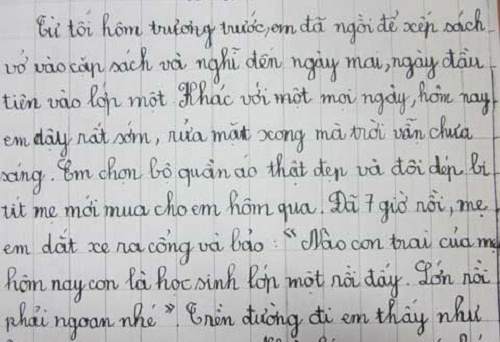 Từ tối hôm trương trước, em đã ngồi để xếp sách
vở vào cặp sách và nghĩ đến ngày mai, ngày đầu
tiên vào lớp một Khác với một mọi ngày, hôm nay
em dây rất sớm, rửa mặt xong mà trời vẫn chưa
sáng. Em chọn bộ quần áo thật đẹp và đôi dép bi
tít mẹ mới mua cho em hôm qua. Đã 7 giờ rồi, mẹ
em dắt xe ra cổng và bảo : " Nào con trai của mẹ
hôm nay con là học sinh lớp một rồi đấy. Lớn rồi
phải ngoan nhé ". Trên đường đi em thấy như